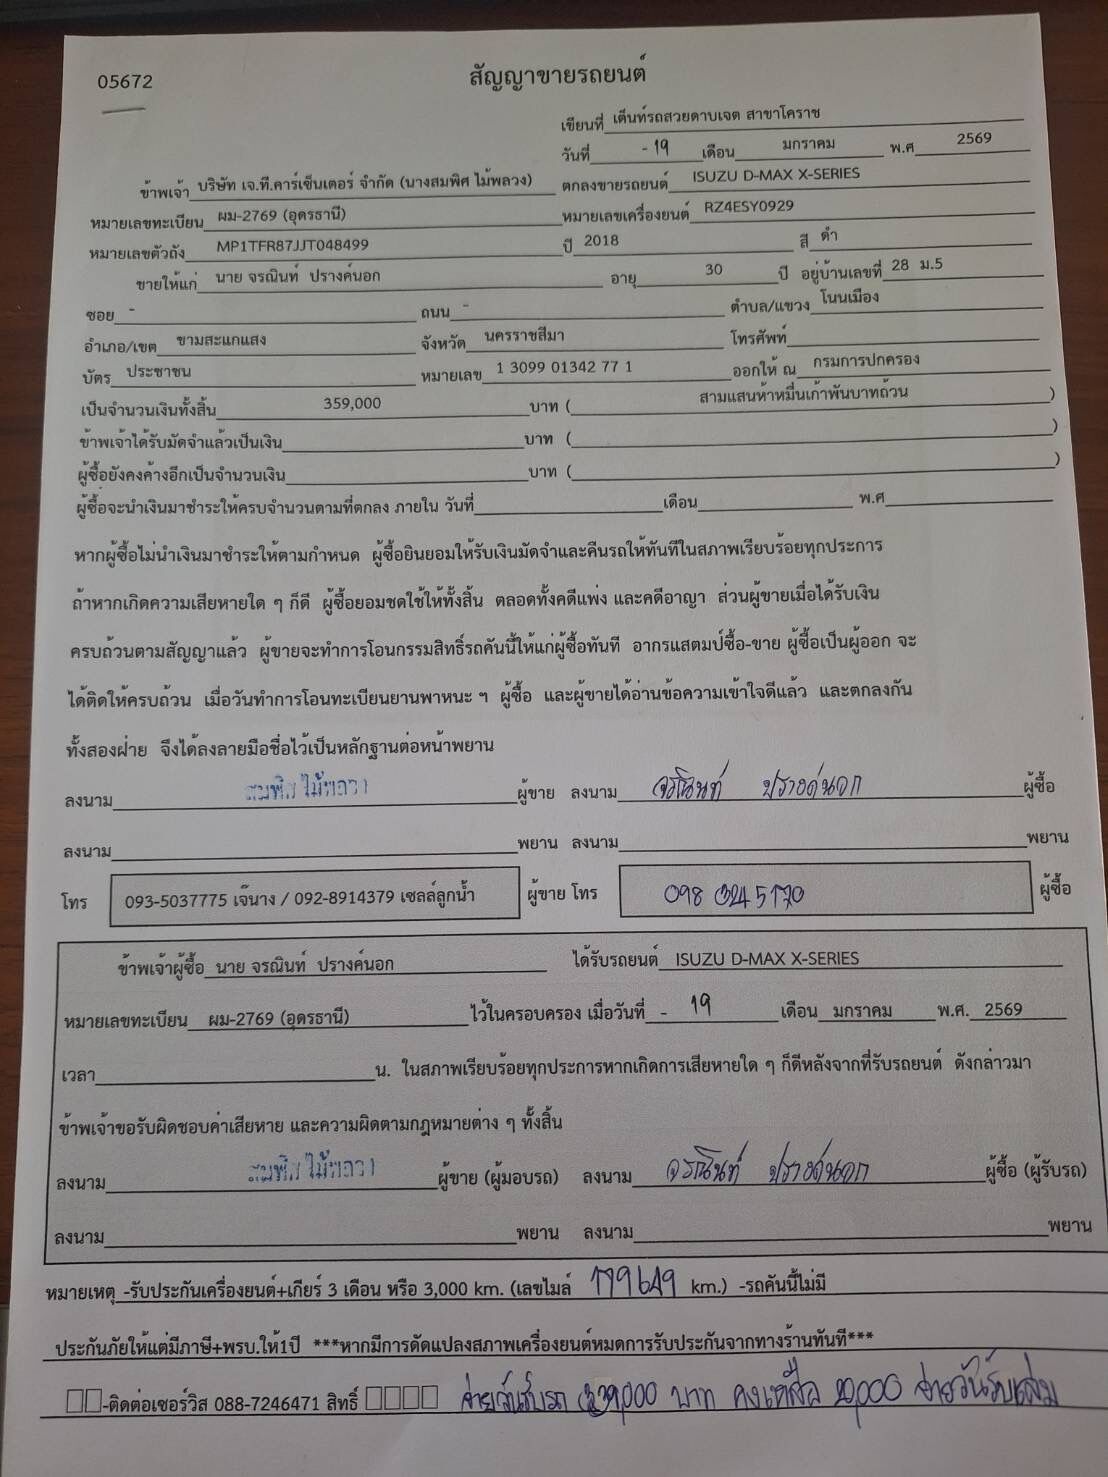 05672
สัญญาขายรถยนต์
เขียนที่ เต็นท์รถสวยดาบเจต สาขาโคราช
วันที่ - 19 เดือน มกราคม พ.ศ 2569
ข้าพเจ้า บริษัท เจ.ที.คาร์เซ็นเตอร์ จำกัด (นางสมพิศ ไม้พลวง) ตกลงขายรถยนต์ ISUZU D-MAX X-SERIES
หมายเลขทะเบียน ผม-2769 (อุดรธานี) หมายเลขเครื่องยนต์ RZ4ESY0929
หมายเลขตัวถัง MP1TFR87JJT048499 ปี 2018 สี ดำ
ขายให้แก่ นาย จรณินท์ ปรางค์นอก อายุ 30 ปี อยู่บ้านเลขที่ 28 ม.5
ซอย - ถนน - ตำบล/แขวง โนนเมือง
อำเภอ/เขต ขามสะแกแสง จังหวัด นครราชสีมา โทรศัพท์
บัตร ประชาชน หมายเลข 1 3099 01342 77 1 ออกให้ ณ กรมการปกครอง
เป็นจำนวนเงินทั้งสิ้น 359,000 บาท ( สามแสนห้าหมื่นเก้าพันบาทถ้วน )
ข้าพเจ้าได้รับมัดจำแล้วเป็นเงิน บาท ( )
ผู้ซื้อยังคงค้างอีกเป็นจำนวนเงิน บาท ( )
ผู้ซื้อจะนำเงินมาชำระให้ครบจำนวนตามที่ตกลง ภายใน วันที่ เดือน พ.ศ
หากผู้ซื้อไม่นำเงินมาชำระให้ตามกำหนด ผู้ซื้อยินยอมให้รับเงินมัดจำและคืนรถให้ทันทีในสภาพเรียบร้อยทุกประการ
ถ้าหากเกิดความเสียหายใด ๆ ก็ดี ผู้ซื้อยอมชดใช้ให้ทั้งสิ้น ตลอดทั้งคดีแพ่ง และคดีอาญา ส่วนผู้ขายเมื่อได้รับเงิน
ครบถ้วนตามสัญญาแล้ว ผู้ขายจะทำการโอนกรรมสิทธิ์รถคันนี้ให้แก่ผู้ซื้อทันที อากรแสตมป์ซื้อ-ขาย ผู้ซื้อเป็นผู้ออก จะ
ได้ติดให้ครบถ้วน เมื่อวันทำการโอนทะเบียนยานพาหนะ ฯ ผู้ซื้อ และผู้ขายได้อ่านข้อความเข้าใจดีแล้ว และตกลงกัน
ทั้งสองฝ่าย จึงได้ลงลายมือชื่อไว้เป็นหลักฐานต่อหน้าพยาน
ลงนาม สมพิศ ไม้พลวง ผู้ขาย ลงนาม จรณินท์ ปรางค์นอก ผู้ซื้อ
ลงนาม พยาน ลงนาม พยาน
โทร 093-5037775 เจ๊นาง / 092-8914379 เซลล์ลูกน้ำ ผู้ขาย โทร 098 0245170 ผู้ซื้อ
ข้าพเจ้าผู้ซื้อ นาย จรณินท์ ปรางค์นอก ได้รับรถยนต์ ISUZU D-MAX X-SERIES
หมายเลขทะเบียน ผม-2769 (อุดรธานี) ไว้ในครอบครอง เมื่อวันที่ - 19 เดือน มกราคม พ.ศ. 2569
เวลา น. ในสภาพเรียบร้อยทุกประการหากเกิดการเสียหายใด ๆ ก็ดีหลังจากที่รับรถยนต์ ดังกล่าวมา
ข้าพเจ้าขอรับผิดชอบค่าเสียหาย และความผิดตามกฎหมายต่าง ๆ ทั้งสิ้น
ลงนาม สมพิศ ไม้พลวง ผู้ขาย (ผู้มอบรถ) ลงนาม จรณินท์ ปรางค์นอก ผู้ซื้อ (ผู้รับรถ)
ลงนาม พยาน ลงนาม พยาน
หมายเหตุ -รับประกันเครื่องยนต์+เกียร์ 3 เดือน หรือ 3,000 km. (เลขไมล์ 179649 km.) -รถคันนี้ไม่มี
ประกันภัยให้แต่มีภาษี+พรบ.ให้1ปี ***หากมีการดัดแปลงสภาพเครื่องยนต์หมดการรับประกันจากทางร้านทันที***
□□-ติดต่อเซอร์วิส 088-7246471 สิทธิ์ □□□□ จ่ายวันรับรถ 339,000 บาท คงเหลือ 20,000 จ่ายวันรับเล่ม